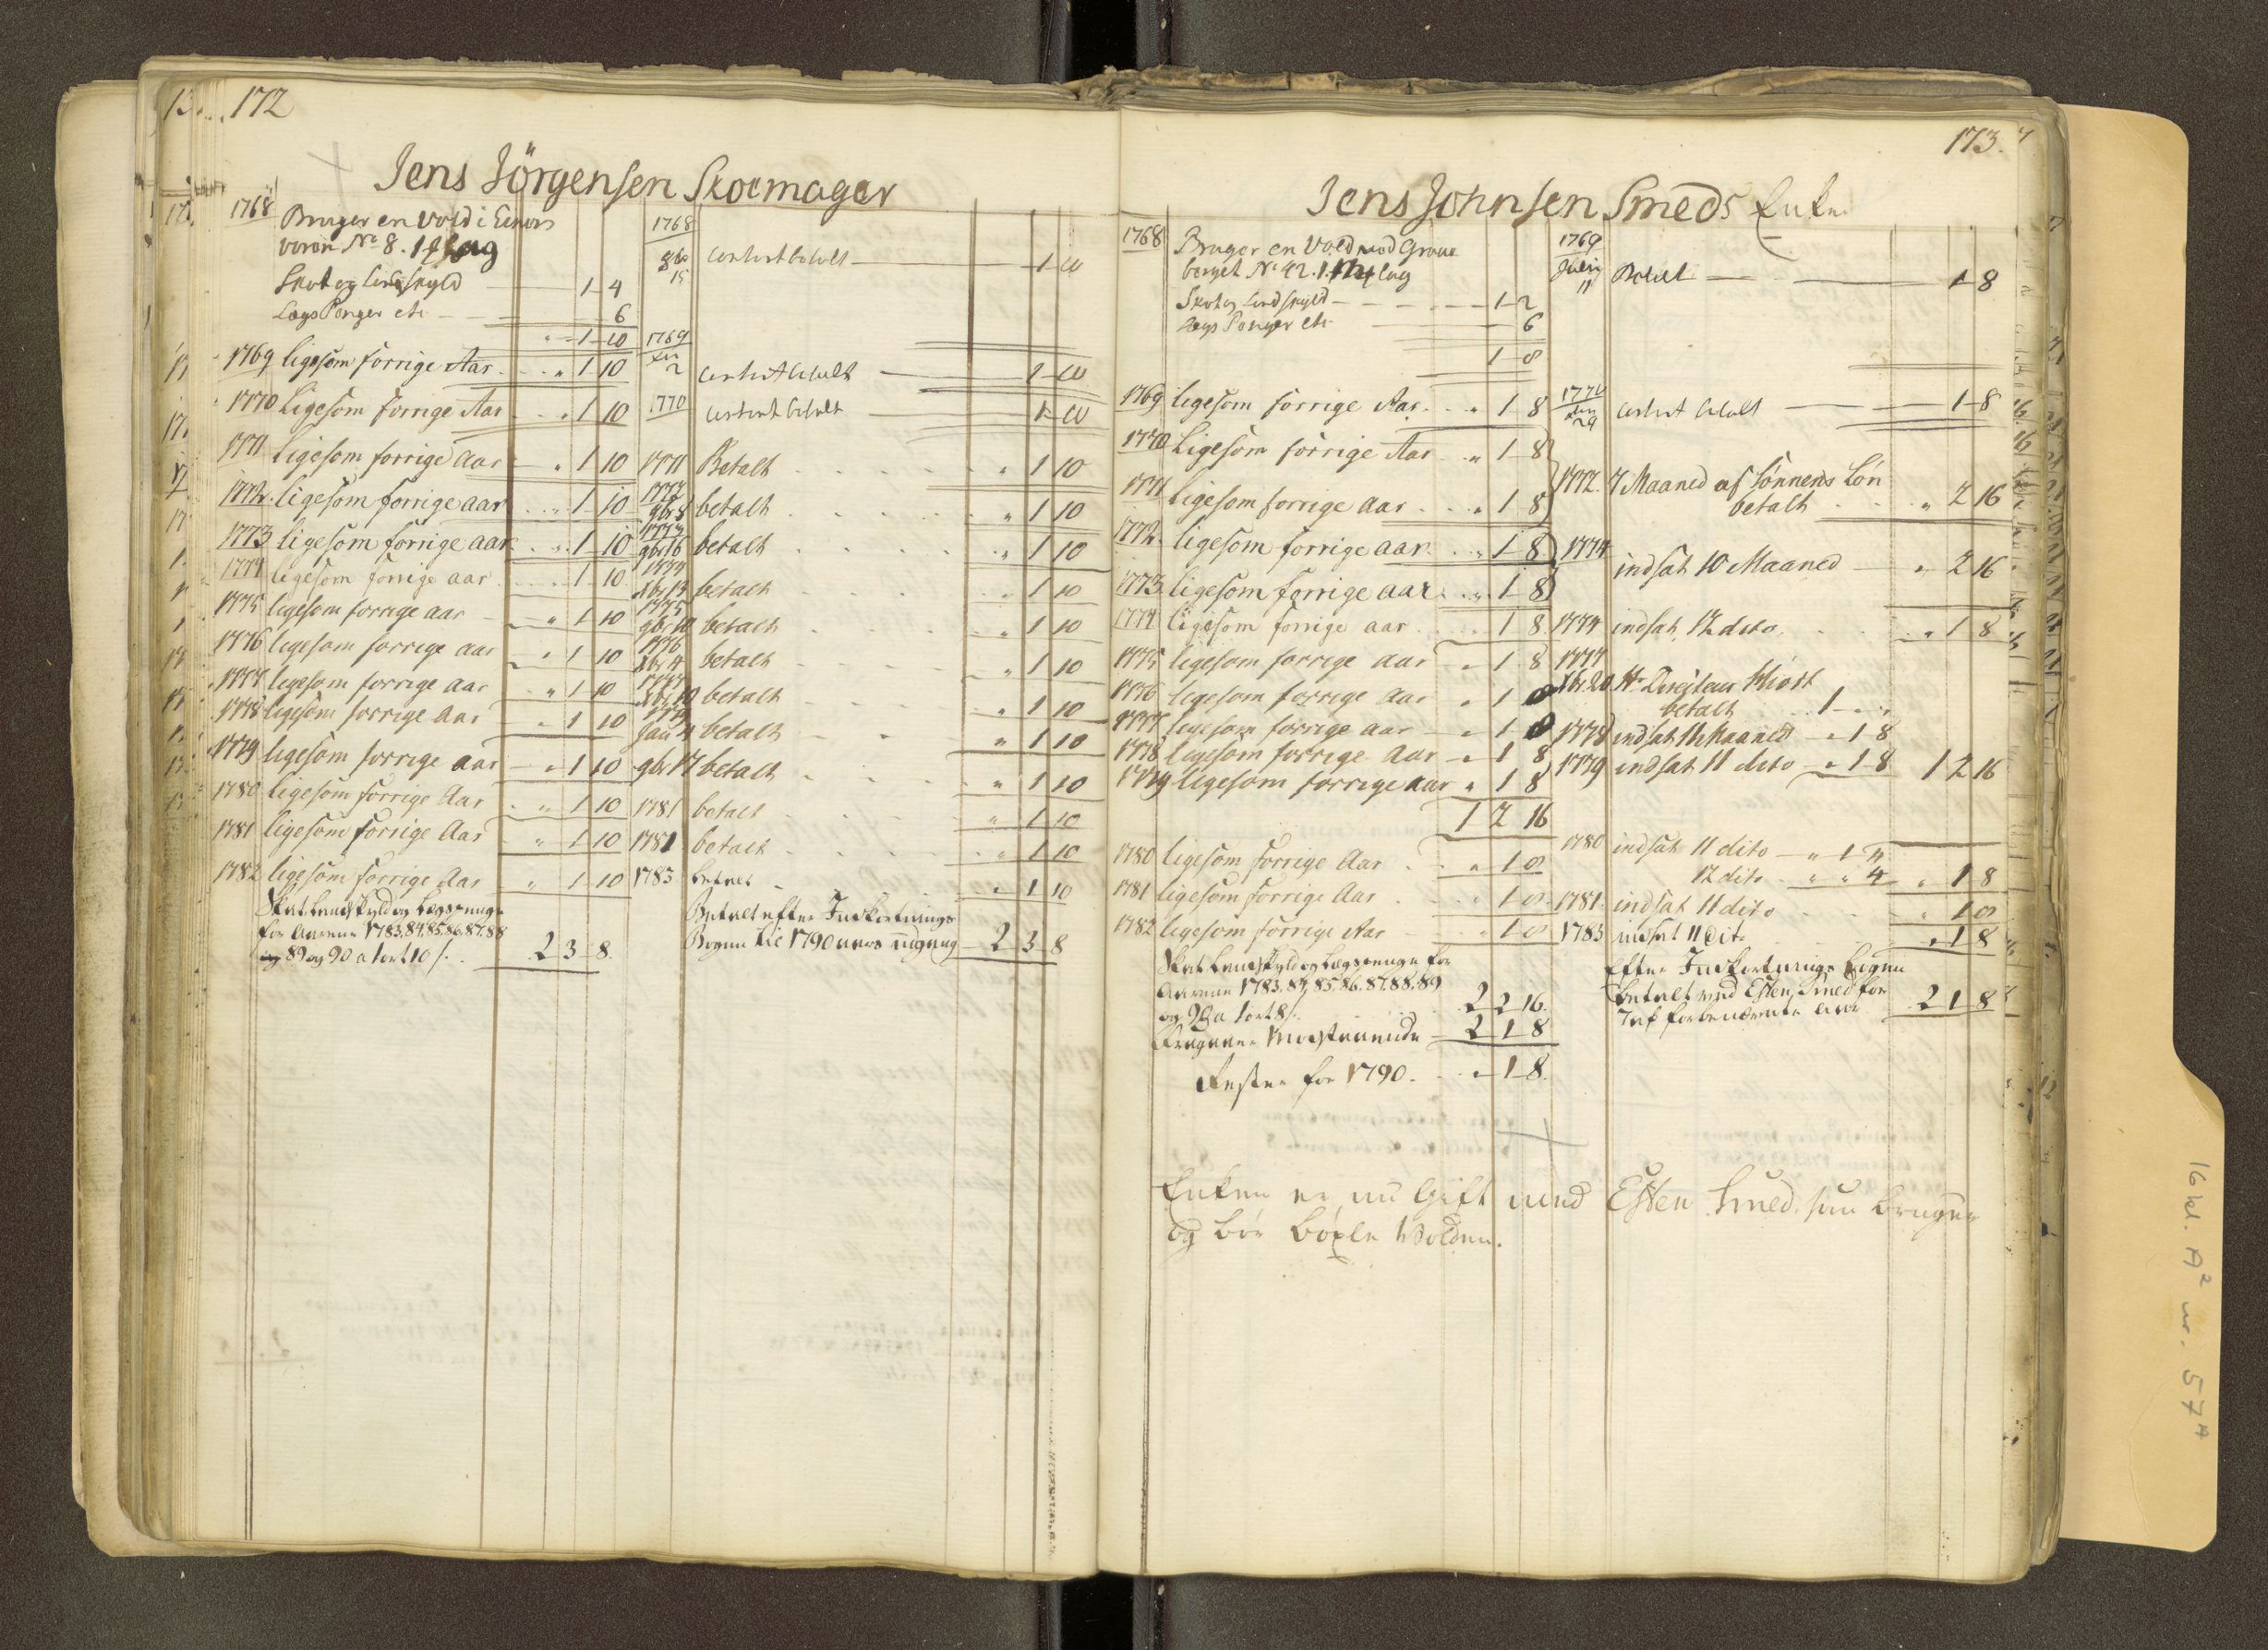 172
Jens Jörgensen Skoemager
1768 Bruger en Vold i
No 8. 1
Skat og Landskyld 1 4
LægsPenger etc 6
1 10
1769 ligesom forrige Aar 1 10
1770 Ligesom forrige Aar 1 10
1771 Ligesom forrige Aar 1 10
1772 ligesom forrige aar 1 10
1773 ligesom forrige aar 1 10
1774 ligesom forrige aar 1 10
1775 ligesom forrige aar 1 10
1776 ligesom forrige aar 1 10
1777 ligesom forrige aar 1 10
1778 ligesom forrige Aar 1 10
1779 ligesom forrige aar 1 10
1780 ligesom forrige Aar 1 10
1781 ligesom forrige Aar 1 10
1782 ligesom forrige Aar 1 10
Skat Landskyld og Lægspenge
for Aarene 1783. 84. 85. 86. 87. 88
89 og 90 a 1 ort 10 s. 2 3 8
1768
15 betalt 1 10
1769
2 betalt 1 10
1770 betalt 1 10
1771 Betalt 1 10
betalt 1 10
betalt 1 10
betalt 1 10
1775
betalt 1 10
1776
betalt 1 10
1777
betalt 1 10
betalt 1 10
betalt 1 10
1781 betalt 1 10
betalt 1 10
1783 betalt 1 10
Betalt efter Indkortnings
Bogen til 1790 aars udgang 2 3 8
173.
Jens Johnsen Smeds Enke
1768 Bruger en Vold mod Graae
berget No 42. 1
Skat og Landskyld 1 2
LægsPenger etc 6
1 8
1769 ligesom forrige Aar 1 8
1770 Ligesom forrige Aar 1 8
1771 ligesom forrige aar 1 8
1772 ligesom forrige aar 1 8
1773 ligesom forrige aar 1 8
1774 ligesom forrige aar 1 8
1775 ligesom forrige aar 1 8
1776 ligesom forrige aar 1 8
1777 ligesom forrige aar 1 8
1778 ligesom forrige Aar 1 8
1779 ligesom forrige aar 1 8
1 2 16
1780 ligesom forrige Aar 1 8
1781 ligesom forrige Aar 1 8
1782 ligesom forrige Aar 1 8
Skat Landskyld og Lægspenge for
Aarene 1783. 84. 85. 86. 87. 88. 89
og 90 a 1 ort 8 s. 2 2 16
Fragaaer Modstaaende 2 1 8
Rester for 1790. 1 8
1769
Julij
11 Betalt 1 8
29 betalt 1 8
1772. 7 Maaned af Sønnens Løn
betalt 2 16
1774 indsat 10 Maaned 2 16
1774 indsat 12 dito 1 8
1777
Xbr. 20 Hr Directeur Hiort
betalt 1
1778 indsat 11 Maaned 1 8
1779 indsat 11 dito 1 8 1 2 16
1780 indsat 11 dito 1 4
12 dito 4 1 8
1781. indsat 11 dito 1 8
1783 indsat 11 dito 1 8
Efter Indkortnings bogen
betalt ved Esten Smed for
forbenævnte Aar 2 1 8
Enken er nu Gift med Esten Smed, som bruger
og bør böxle Volden.
16 kl. A2 nr. 57A